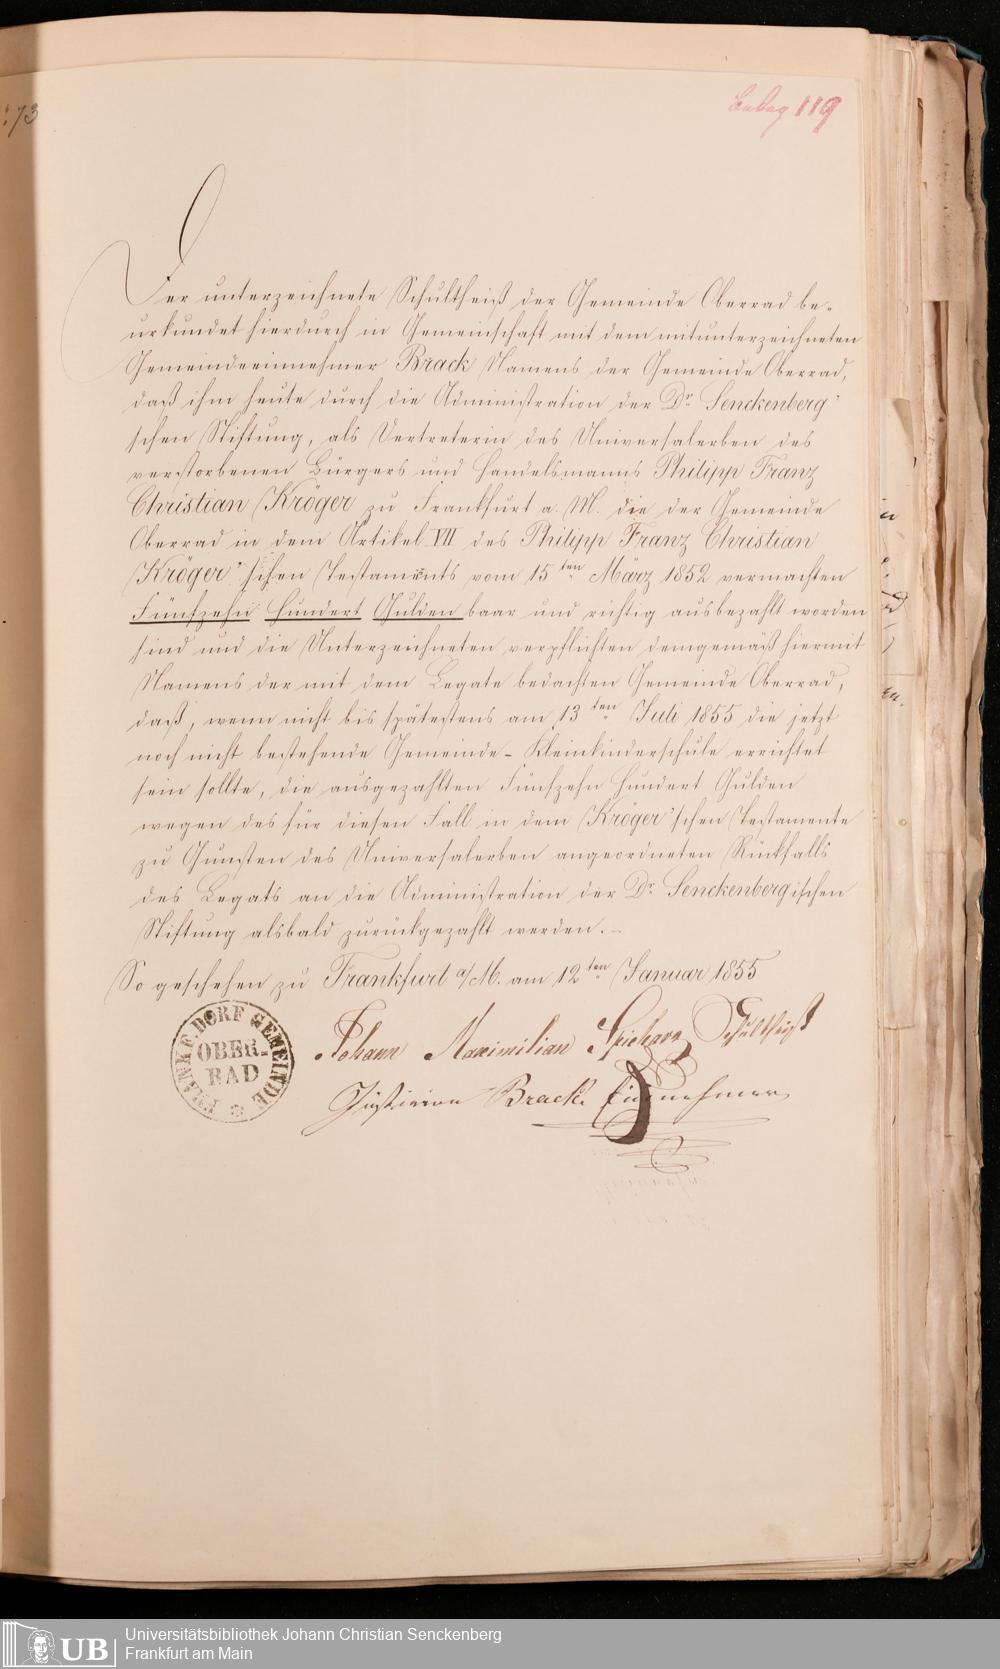 : 73
Beleg 119
Der unterzeichnete Schultheiß der Gemeinde Oberrad be-
urkundet hierdurch in Gemeinschaft mit dem mitunterzeichneten
Gemeindeeinnehmer Brack Namens der Gemeinde Oberrad,
daß ihm heute durch die Administration der Dr. Senckenberg'
schen Stiftung, als Vertreterin des Universalerben des
verstorbenen Bürgers und Handelsmanns Philipp Franz
Christian Kröger zu Frankfurt a. M. die der Gemeinde
Oberrad in dem Artikel VII des Philipp Franz Christian
Kröger'schen Testaments vom 15ten März 1852 vermachten
Fünfzehn Hundert Gulden baar und richtig ausbezahlt worden
sind und die Unterzeichneten verpflichten demgemäß hiermit
Namens der mit dem Legate bedachten Gemeinde Oberrad,
daß, wenn nicht bis spätestens am 13ten Juli 1855 die jetzt
noch nicht bestehende Gemeinde-Kleinkinderschule errichtet
sein sollte, die ausgezahlten Fünfzehn Hundert Gulden
wegen des für diesen Fall in dem Kröger'schen Testamente
zu Gunsten des Universalerben angeordneten Rückfalls
des Legats an die Administration der Dr. Senckenbergischen
Stiftung alsbald zurückgezahlt werden. –
So geschehen zu Frankfurt a/M. am 12ten Januar 1855
Johann Maximilian Schultheiß
Brack. Einnehmer
FRANKF. DORF GEMEINDE
OBER-
RAD
UB
Universitätsbibliothek Johann Christian Senckenberg
Frankfurt am Main